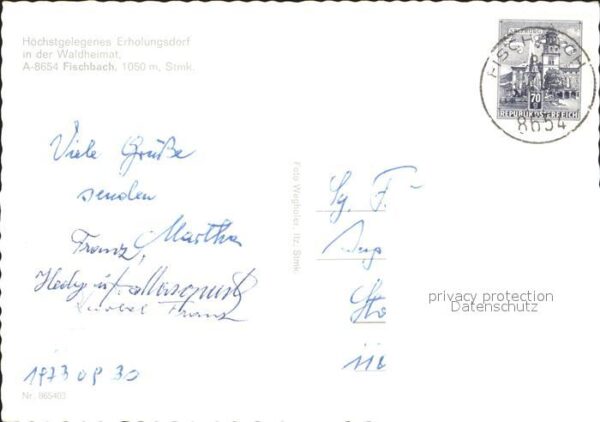 Höchstgelegenes Erholungsdorf
in der Waldheimat,
A-8654 Fischbach, 1050 m, Stmk.
FISCHBACH
70
REPUBLIK ÖSTERREICH
8654
Viele Grüße
senden
Martha
Franz,
Hedy u.
Franz
1973 09 30
Nr. 865403
Foto Weghofer, Ilz, Stmk.
Fg. F.
privacy protection
Datenschutz